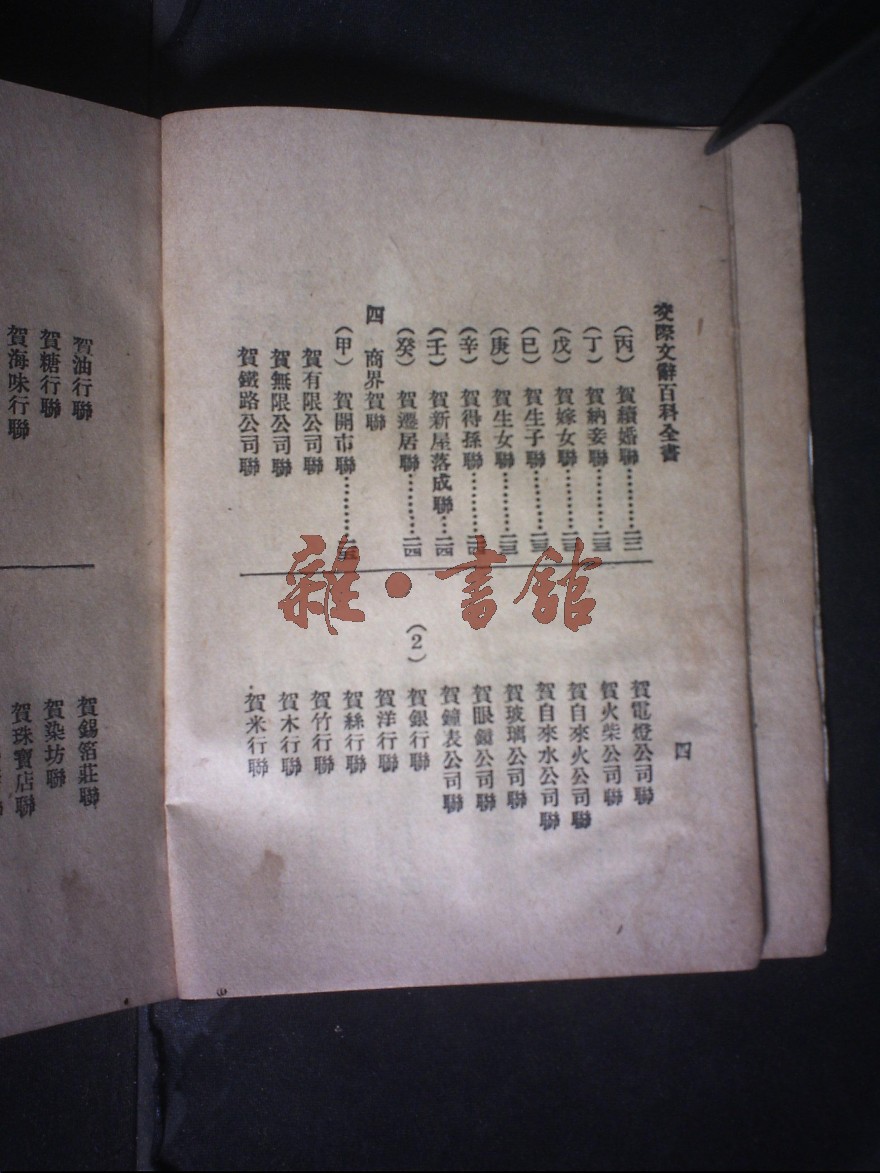 交際文辭百科全書
四
(丙) 賀續婚聯…………二三
(丁) 賀納妾聯…………二三
(戊) 賀嫁女聯…………二三
(巳) 賀生子聯…………二三
(庚) 賀生女聯…………二三
(辛) 賀得孫聯…………二四
(壬) 賀新屋落成聯……二四
(癸) 賀遷居聯…………二四
四 商界賀聯
(甲) 賀開市聯…………二五
賀有限公司聯
賀無限公司聯
賀鐵路公司聯
賀電燈公司聯
賀火柴公司聯
賀自來火公司聯
賀自來水公司聯
賀玻璃公司聯
賀眼鏡公司聯
賀鐘表公司聯
(2)
賀銀行聯
賀洋行聯
賀絲行聯
賀竹行聯
賀木行聯
賀米行聯
賀油行聯
賀糖行聯
賀海味行聯
賀錫箔莊聯
賀染坊聯
賀珠寶店聯
雜·書館